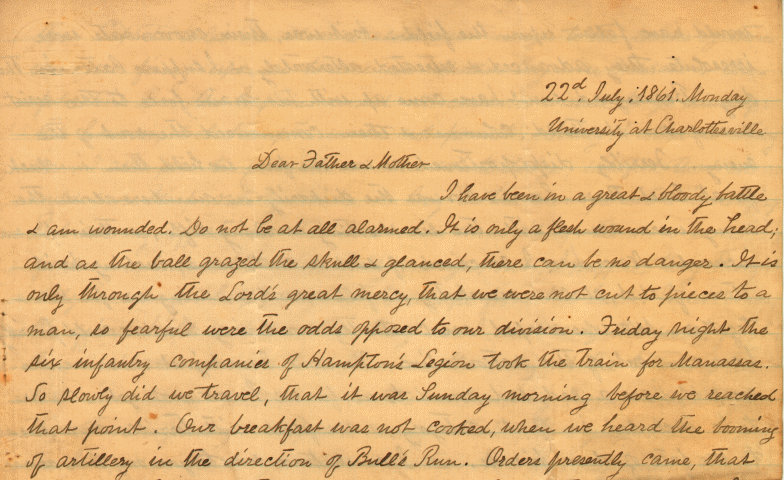 22d. July. 1861. Monday
University at Charlottesville
Dear Father & Mother
I have been in a great & bloody battle
& am wounded. Do not be at all alarmed. It is only a flesh wound in the head;
and as the ball grazed the skull & glanced, there can be no danger. It is
only through the Lord's great mercy, that we were not cut to pieces to a
man, so fearful were the odds opposed to our division. Friday night the
six infantry companies of Hampton's Legion took the train for Manassas.
So slowly did we travel, that it was Sunday morning before we reached
that point. Our breakfast was not cooked, when we heard the booming
of artillery in the direction of Bull's Run. Orders presently came, that